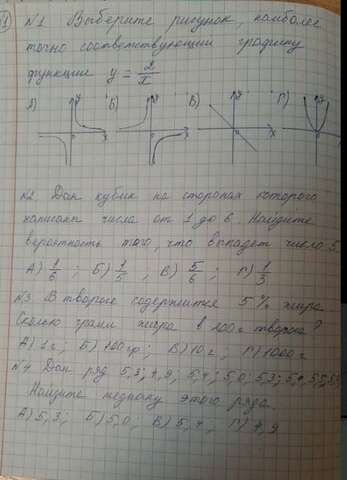 №1 Выберите рисунок, наиболее
точно соответствующий графику
функции y = 2/x
А) Б) В) Г)
№2. Дан кубик на сторонах которого
написаны числа от 1 до 6. Найдите
вероятность того, что выпадет число 5.
А) 1/6; Б) 1/5; В) 5/6; Г) 1/3
№3 В твороге содержится 5% жира.
Сколько грамм жира в 200 г творога?
А) 1г; Б) 100гр; В) 10г; Г) 1000г
№4 Дан ряд 5,3; 4,9; 5,4; 5,0; 5,3; 5,4; 5,5;
Найдите медиану этого ряда.
А) 5,3; Б) 5,0; В) 5,4; Г) 4,9